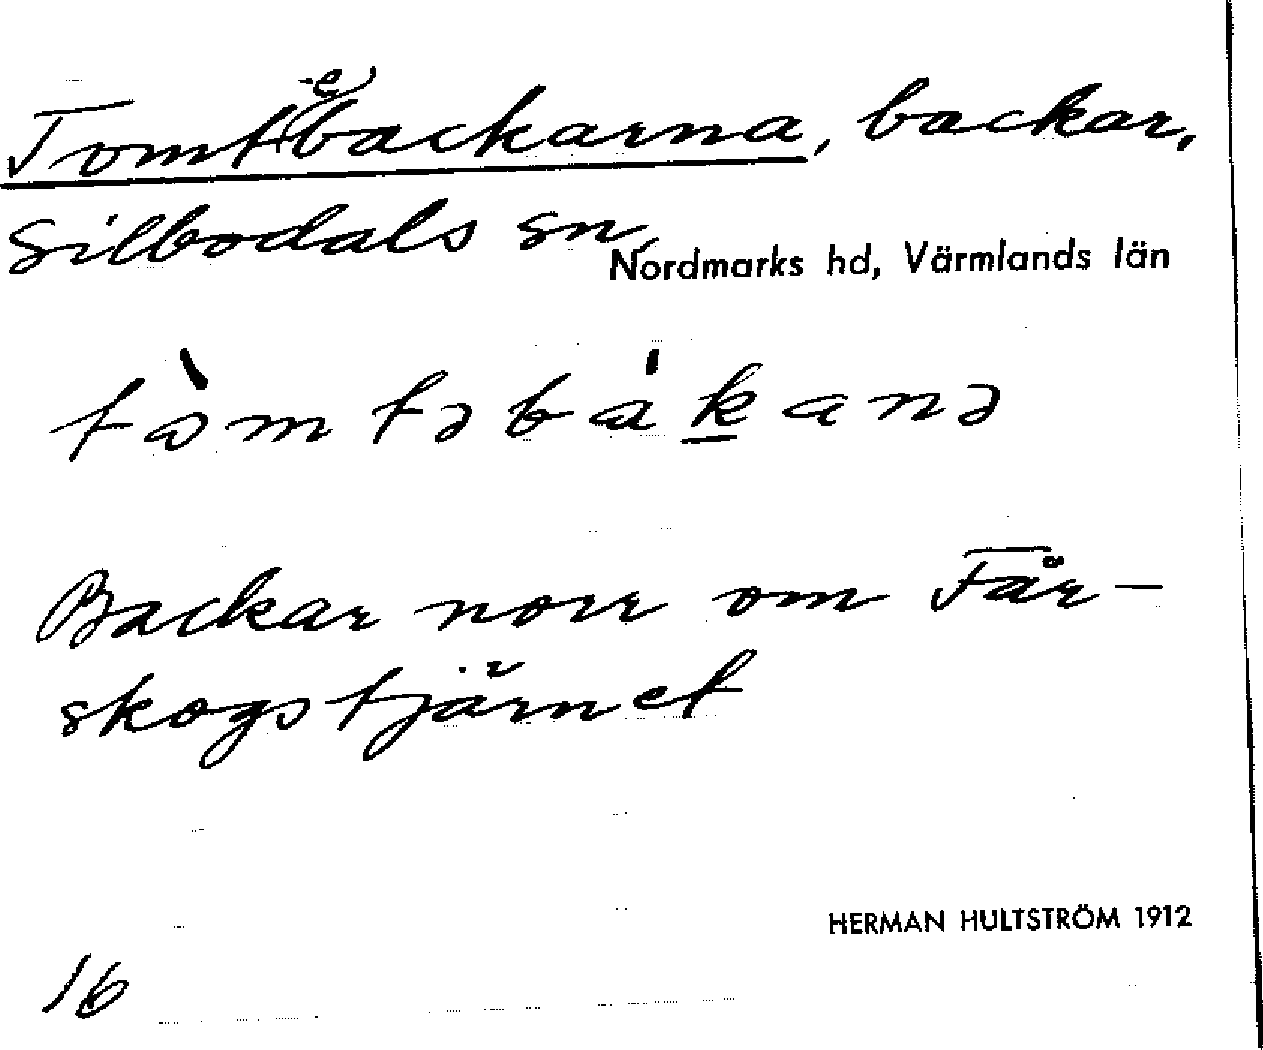 Tomt(-e)backarna, backar,
Silbodals sn,
Nordmarks hd, Värmlands län
tòmtəbákanə
Backar norr om Får-
skogstjärnet
HERMAN HULTSTRÖM 1912
16